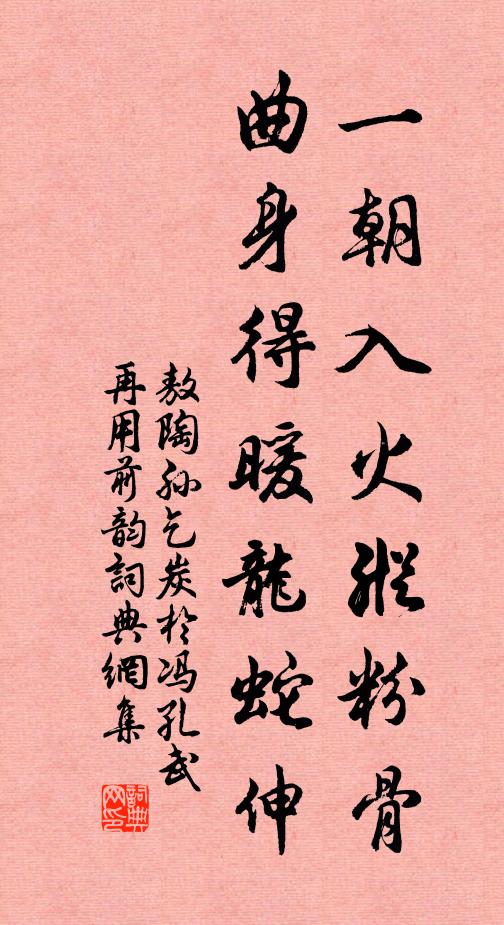 一朝入火縱粉骨
曲身得暖龍蛇伸
敖陶孫乞炭於馮孔武
再用前韵詞典網集
詞典网印